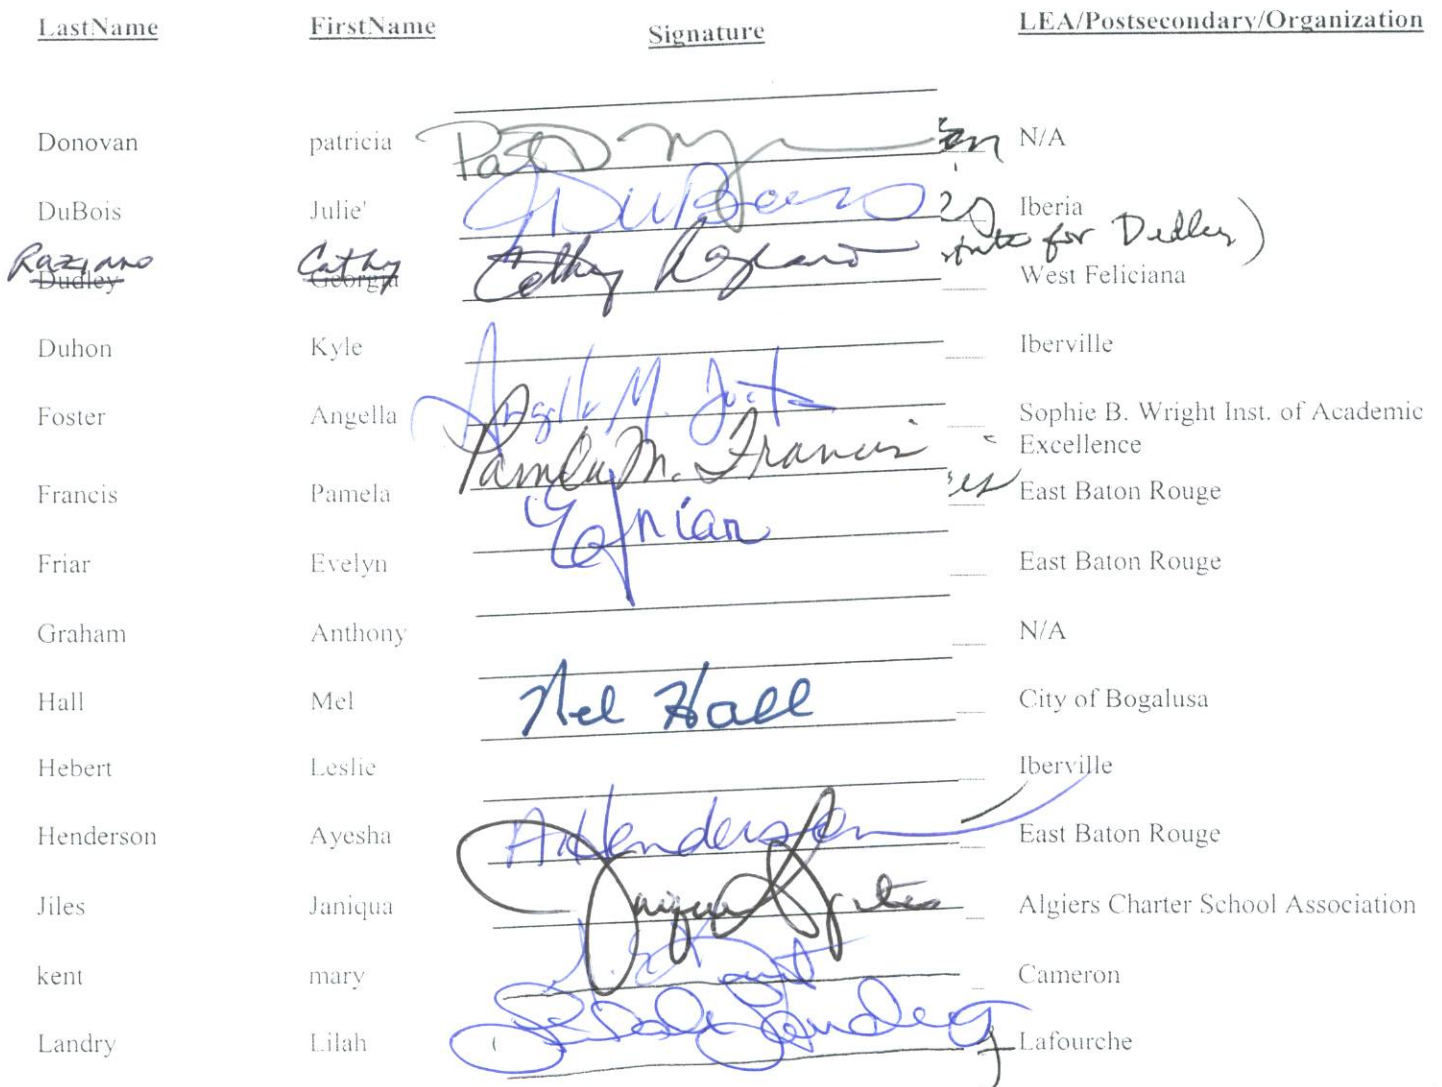 LastName FirstName Signature LEA/Postsecondary/Organization
Donovan patricia Pat D N/A
DuBois Julie' JDuBois Iberia
Raziano Cathy Cathy Raziano for Dudley)
Dudley Georgia West Feliciana
Duhon Kyle Iberville
Foster Angella Angella M. Sophie B. Wright Inst. of Academic
Excellence
Francis Pamela Pamela M. Francis East Baton Rouge
Friar Evelyn Friar East Baton Rouge
Graham Anthony N/A
Hall Mel Mel Hall City of Bogalusa
Hebert Leslie Iberville
Henderson Ayesha A Henderson East Baton Rouge
Jiles Janiqua Algiers Charter School Association
kent mary Cameron
Landry Lilah Lafourche